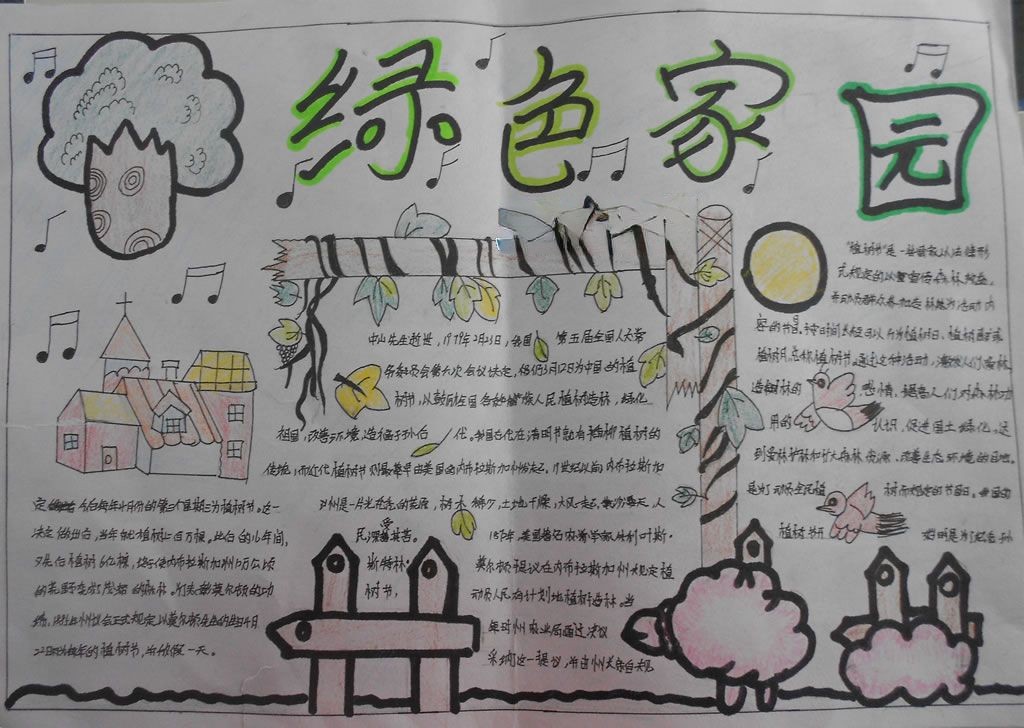 绿色家园
"植树节"是一些国家以法律形
式规定的以宣传森林效益,
并动员群众参加造林为活动内
容的节日。按时间长短可以分为植树日、植树周或
植树月,总称植树节。通过这种活动,激发人们爱林
造林的
感情,提高人们对森林功
用的
认识,促进国土绿化,达
到爱林护林和扩大森林资源、改善生态环境的目的。
是为了动员全民植
树而规定的节日。中国的
植树节
中山先生逝世,1979年2月23日,我国
第五届全国人大常
务委员会第六次会议决定,将3月12日为中国的植
树节,以鼓励全国各
族人民植树造林,绿化
祖国,改善环境,造福子孙后
代。我国古代在清明节就有插柳植树的
传统,而近代植树节则最早由美国的内布拉斯加州发起。19世纪以前,内布拉斯加
州是一片光秃秃的荒原,树木稀少,土地干燥,大风一起,黄沙满天,人
民深受其苦。
1872年,美国著名农学家朱利叶斯·
斯特林·
莫尔顿提议在内布拉斯加州规定植
树节,
动员人民有计划地植树造林。当
年时州农业局通过决议
采纳这一提议,并由州长亲自规
定今后每年4月份的第三个星期三为植树节。这一
决定做出后,当年就植树上百万棵。此后的16年间,
又先后植树6亿棵,终于使内布拉斯加州10万公顷
的荒野变成了茂密的森林。为表彰莫尔顿的功
绩,1885年州议会正式规定以莫尔顿先生的生日4月
22日为每年的植树节,并放假一天。